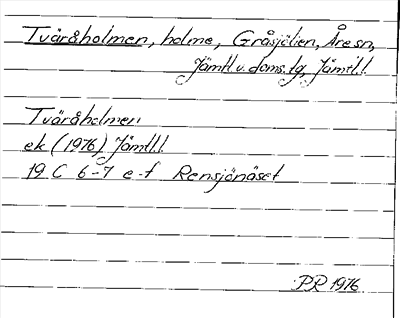 Tväråholmen, holme, Gråsjölien, Åre sn,
Jämtl.v. doms.tg, Jämtl.l.
Tväråholmen
ek (1976) Jämtl.l.
19 C 6-7 e-f Rensjönäset
PR 1976